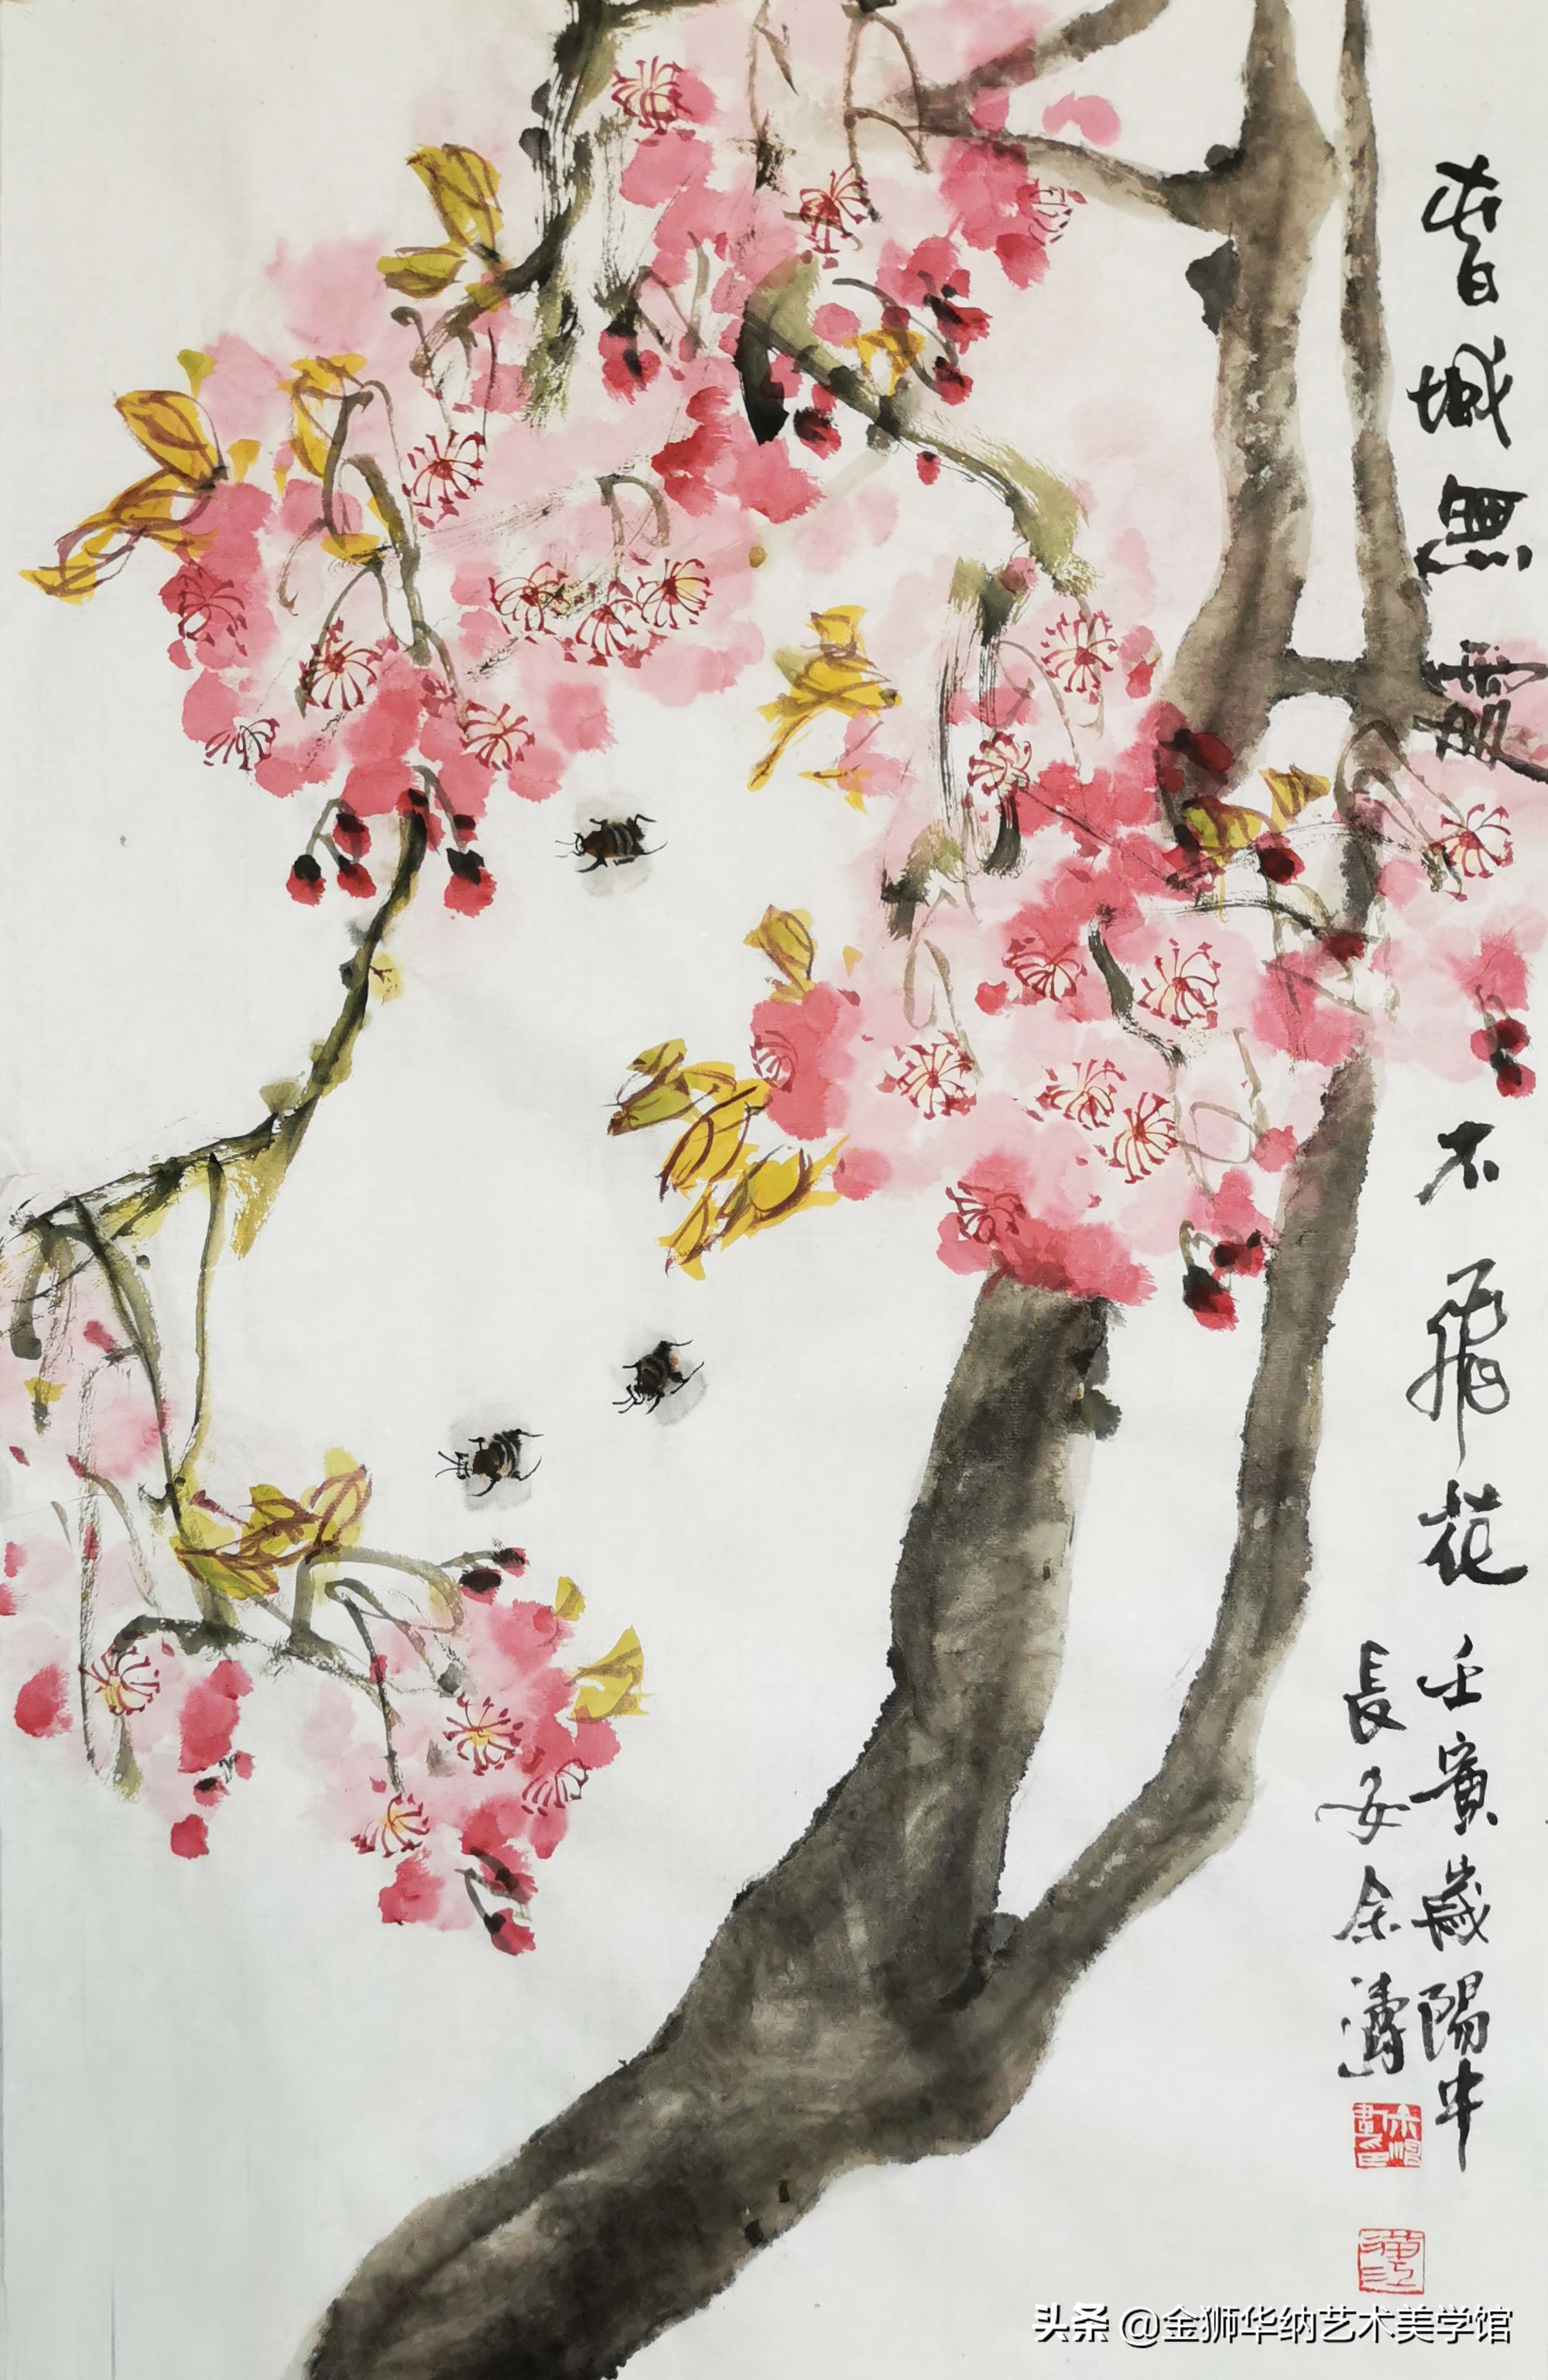 春城無處不飛花 壬寅歲陽中
長安余濤
头条 @金狮华纳艺术美学馆